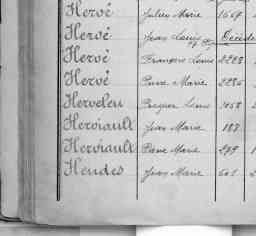 Hervé Julien Marie 1669
Hervé Jean Louis Décédé
Hervé François Louis 2228
Hervé Pierre Marie 2286
Herveleu Louis 1058
Herviault Jean Marie 187
Herviault Pierre Marie 299
Heudes Jean Marie 601